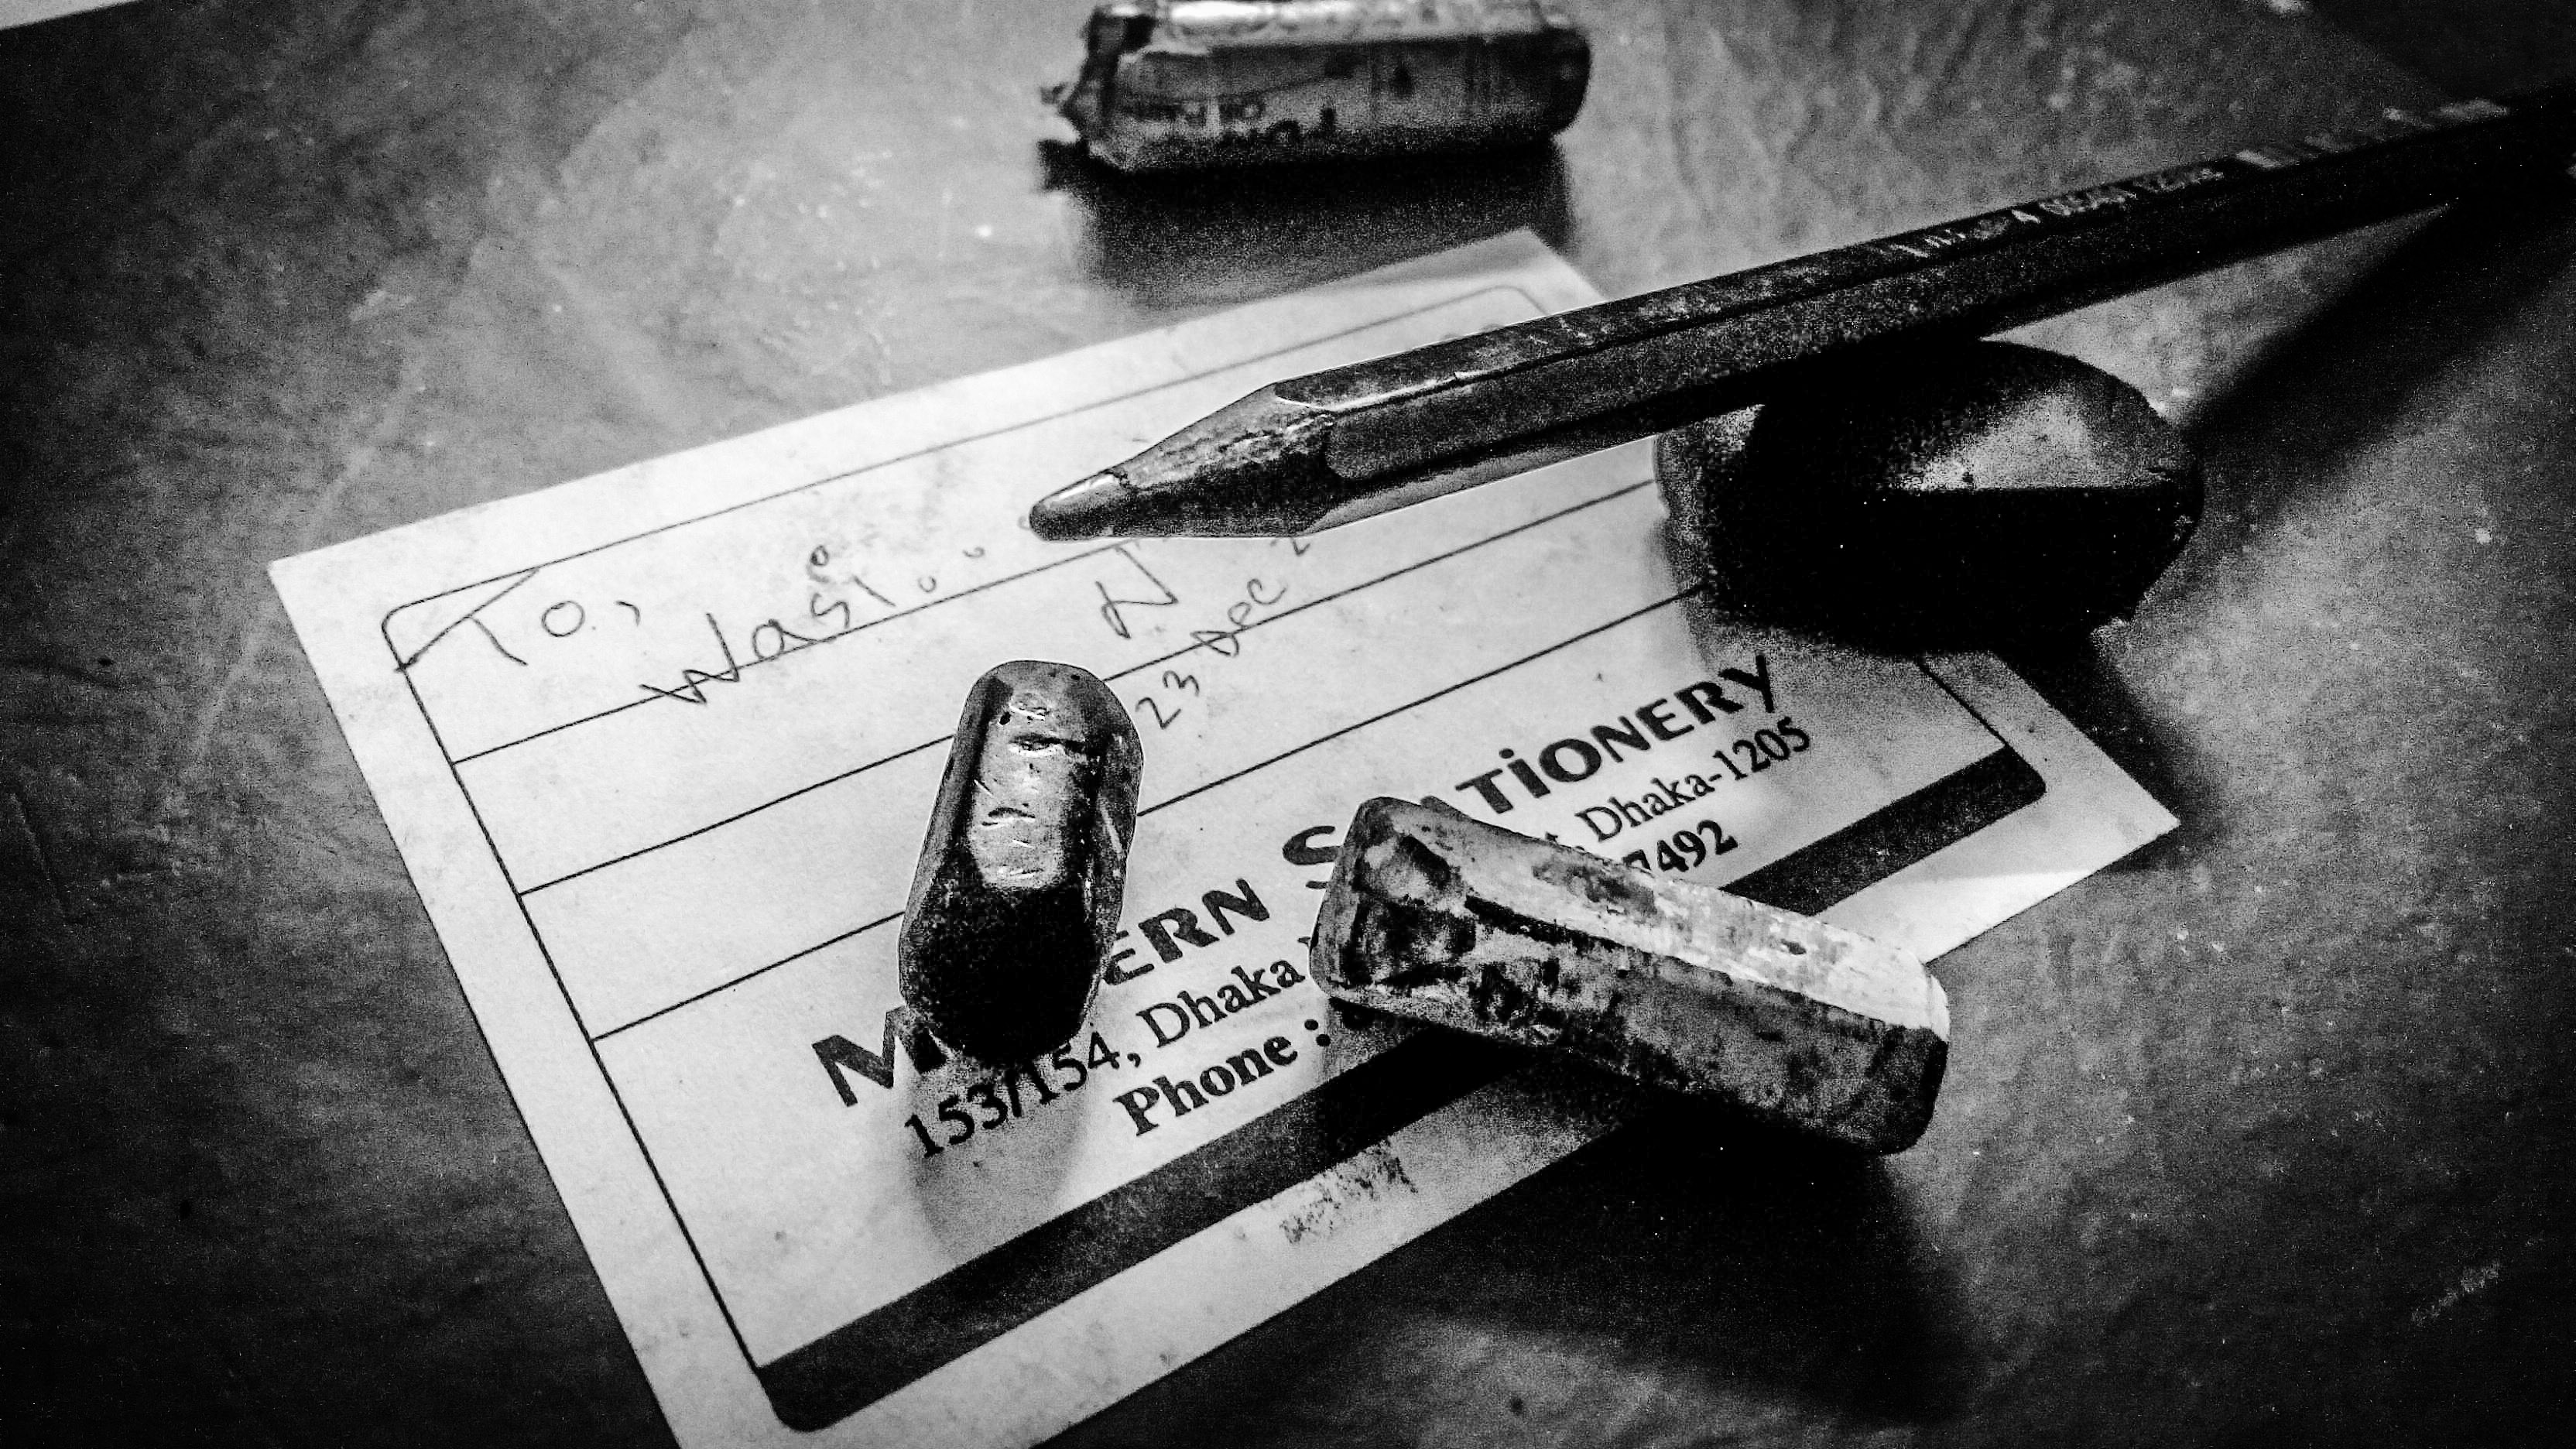 To,
Wasi
23 Dec
M ERN S TIONERY
153/154, Dhaka Dhaka-1205
Phone : 7492